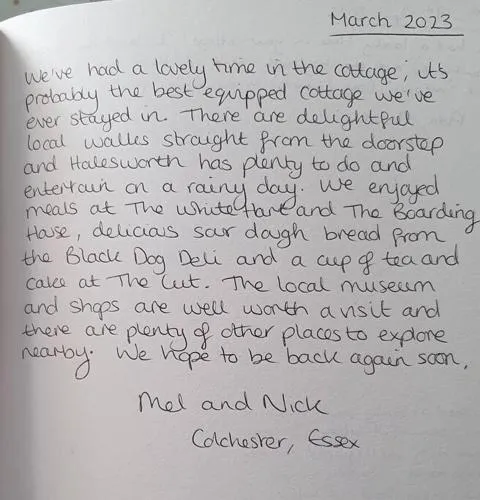 March 2023
We've had a lovely time in the cottage, it's
probably the best equipped cottage we've
ever stayed in. There are delightful
local walks straight from the doorstep
and Halesworth has plenty to do and
entertain on a rainy day. We enjoyed
meals at The White Hart and The Boarding
House, delicious sour dough bread from
the Black Dog Deli and a cup of tea and
cake at The Cut. The local museum
and shops are well worth a visit and
there are plenty of other places to explore
nearby. We hope to be back again soon,
Mel and Nick
Colchester, Essex